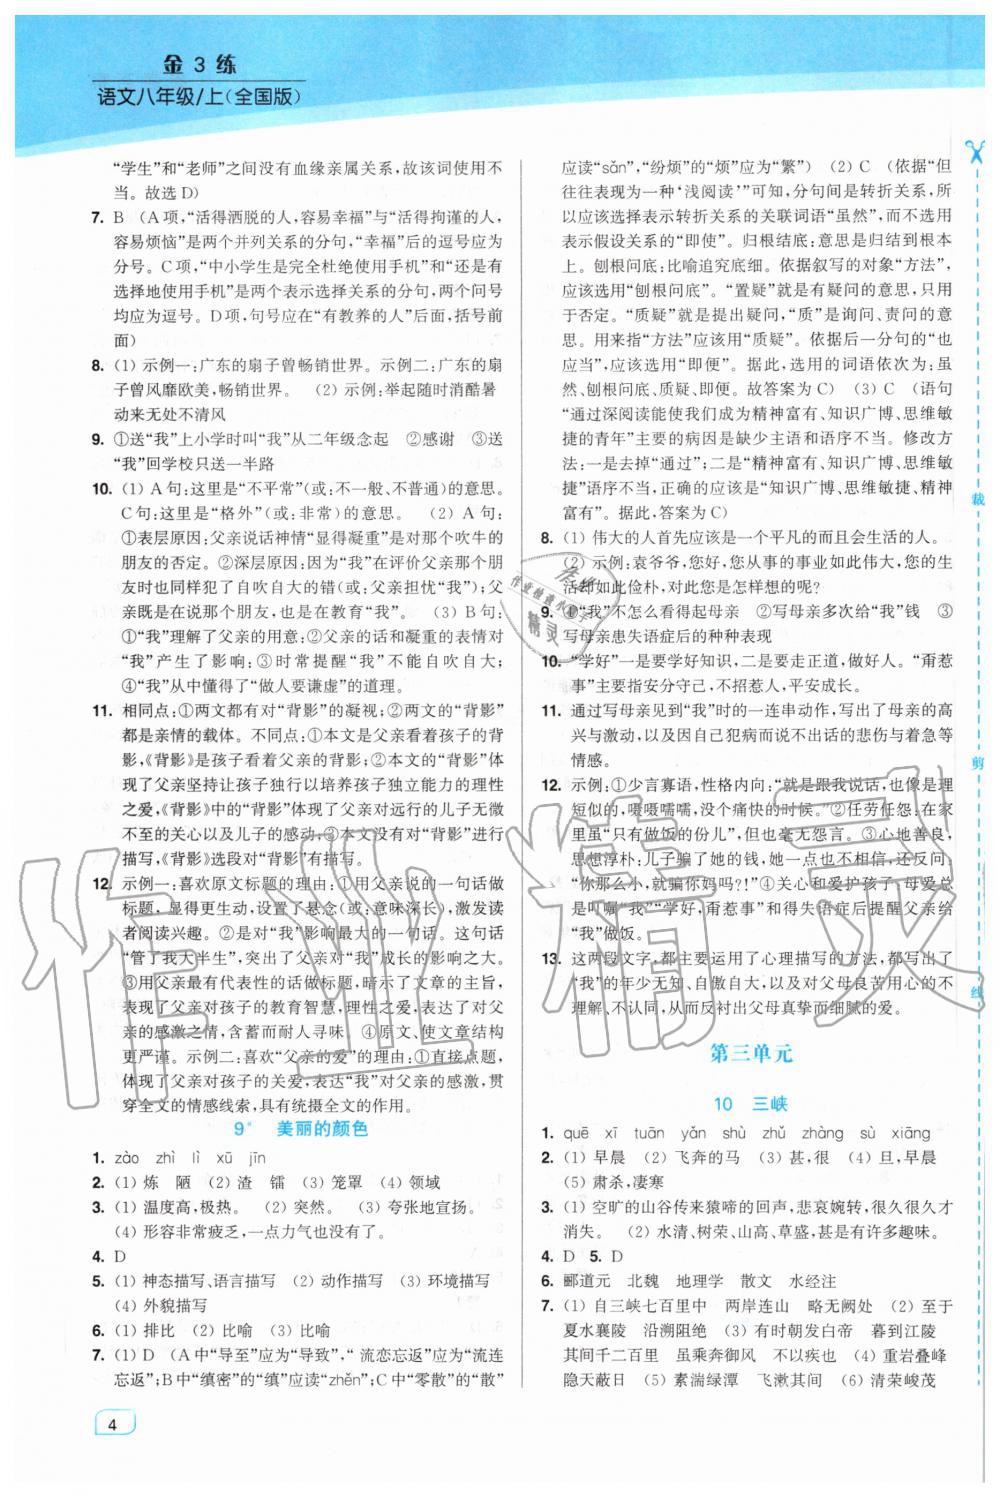 金 3 练
语文八年级/上(全国版)
“学生”和“老师”之间没有血缘亲属关系,故该词使用不
当。故选 D)
7. B (A 项,“活得洒脱的人,容易幸福”与“活得拘谨的人,
容易烦恼”是两个并列关系的分句,“幸福”后的逗号应为
分号。C 项,“中小学生是完全杜绝使用手机”和“还是有
选择地使用手机”是两个表示选择关系的分句,两个问号
均应为逗号。D 项,句号应在“有教养的人”后面,括号前
面)
8. (1) 示例一:广东的扇子曾畅销世界。示例二:广东的扇
子曾风靡欧美,畅销世界。 (2) 示例:举起随时消酷暑
动来无处不清风
9. ①送“我”上小学时叫“我”从二年级念起 ②感谢 ③送
“我”回学校只送一半路
10. (1) A 句:这里是“不平常”(或:不一般、不普通)的意思。
C 句:这里是“格外”(或:非常)的意思。 (2) A 句:
①表层原因:父亲说话神情“显得凝重”,是对那个吹牛的
朋友的否定。②深层原因:因为“我”在评价父亲那个朋
友时也可能犯了自吹自大的错(或:父亲担忧“我”),父
亲既是在说那个朋友,也是在教育“我”。 (3) B 句:
①“我”理解了父亲的用意;②父亲的话和凝重的表情对
“我”产生了影响;③时常提醒“我”不能自吹自大;
④“我”从中懂得了“做人要谦虚”的道理。
11. 相同点:①两文都有对“背影”的凝视;②两文的“背影”
都是亲情的载体。不同点:①本文是父亲看着孩子的背
影,《背影》是孩子看着父亲的背影;②本文的“背影”体
现了父亲坚持让孩子独行以培养孩子独立能力的理性
之爱,《背影》中的“背影”体现了父亲对远行的儿子无微
不至的关心以及儿子的感动;③本文没有对“背影”进行
描写,《背影》选段对“背影”有描写。
12. 示例一:喜欢原文标题的理由:①用父亲说的一句话做
标题,显得更生动,设置了悬念(或:意味深长),激发读
者阅读兴趣。②是对“我”影响最大的一句话。这句话
“管了我大半生”,突出了父亲对“我”成长的影响之大。
③用父亲最有代表性的话做标题,彰显了文章的主旨:
父亲对孩子的教育智慧,理性之爱,或孩子对父亲
的感激之情,含蓄而耐人寻味。④点题,使文章结构
更严谨。示例二:喜欢“父亲的爱”的理由:①直接点题,
体现了父亲对孩子的关爱,表达了对父亲的感激,②
贯穿全文的情感线索,具有统摄全文的作用。
9* 美丽的颜色
1. zào zhì lì xū jīn
2. (1) 炼 陋 (2) 渣 镭 (3) 笼罩 (4) 领域
3. (1) 温度高,极热。 (2) 突然。 (3) 夸张地宣扬。
(4) 形容非常疲乏,一点力气也没有了。
4. D
5. (1) 神态描写、语言描写 (2) 动作描写 (3) 环境描写
(4) 外貌描写
6. (1) 排比 (2) 比喻 (3) 比喻
7. (1) D (A 中“导至”应为“导致”,“ 流恋忘返”应为“流连
忘返”;B 中“缜密”的“缜”应读“zhěn”;C 中“零散”的“散”
应读“sǎn”,“纷烦”的“烦”应为“繁”) (2) C (依据“但
往往表现为一种‘浅阅读’”可知,分句间是转折关系,所
以应该选择表示转折关系的关联词语“虽然”,而不应该选
表示假设关系的“即使”。归根结底:意思是归到根本
上。刨根问底:比喻追究底细。依据叙写的对象“方法”,
应该选用“刨根问底”。“置疑”就是怀疑的意思,只用
于否定。“质疑”就是提出疑问,“质”是询问、责问的意
思。用来指“方法”应该用“质疑”。依据后一分句的“也
应当”,应该选用“即便”。据此,选用的词语依次为:虽
然、刨根问底、质疑、即便。故答案为 C) (3) C (语句
“通过深阅读能使我们成为精神富有、知识广博、思维敏
捷的青年”主要的病因是缺少主语和语序不当。修改方
法:一是去掉“通过”;二是“精神富有、知识广博、思维敏
捷”语序不当,正确的应该是“知识广博、思维敏捷、精神
富有”。据此,答案为 C)
8. (1) 伟大的人首先应该是一个平凡的而且会生活的人。
(2) 示例:袁爷爷,您从事的事业如此伟大,您自己的生
活却如此俭朴,对此您是怎样想的呢?
9. ①“我”不怎么看得起母亲 ②写母亲多次给“我”钱 ③
写母亲患失语症后的种种表现
10. “学好”一是要学好知识,二是要走正道,做好人。“甭惹
事”主要指安分守己,不招惹人,平安成长。
11. 通过写母亲见到“我”时的一连串动作,写出了母亲的高
兴与激动,以及因自己犯病而说不出话的悲伤与着急等
情感。
12. 示例:①少言寡语,性格内向:“就是跟我说话,也像是理
短似的,嗫嗫嚅嚅,没个痛快的时候。”②任劳任怨:在家
里虽“只有做饭的份儿”,但毫无怨言。③心地善良,
思想淳朴:儿子骗了她的钱,她一点也不计较,反而说:
“你那么小,就骗你妈吗?”④关心和爱护孩子:母爱总
是叮嘱“我”“学好,甭惹事”和得失语症后提醒父亲给
“我”做饭。
13. 这两段文字,都主要运用了心理描写的方法,都写出了
“我”的年少无知、自傲自大,以及对父母良苦用心的不
理解、不认同,从而反衬出父母真挚而深切的爱。
第三单元
10 三峡
1. quē xī tuān yǎn shù zhǔ zhàng sù xiāng
2. (1) 早晨 (2) 飞奔的马 (3) 甚,很 (4) 旦,早晨
(5) 肃杀,凄寒
3. (1) 空旷的山谷传来猿啼的回声,悲哀婉转,很久很久才
消失。 (2) 水清、树荣、山高、草盛,甚是有许多趣味。
4. D 5. D
6. 郦道元 北魏 地理学 散文 水经注
7. (1) 自三峡七百里中 两岸连山 略无阙处 (2) 至于
夏水襄陵 沿溯阻绝 (3) 有时朝发白帝 暮到江陵
其间千二百里 虽乘奔御风 不以疾也 (4) 重岩叠嶂
隐天蔽日 (5) 素湍绿潭 飞漱其间 (6) 清荣峻茂
4
裁
剪
线
作业精灵